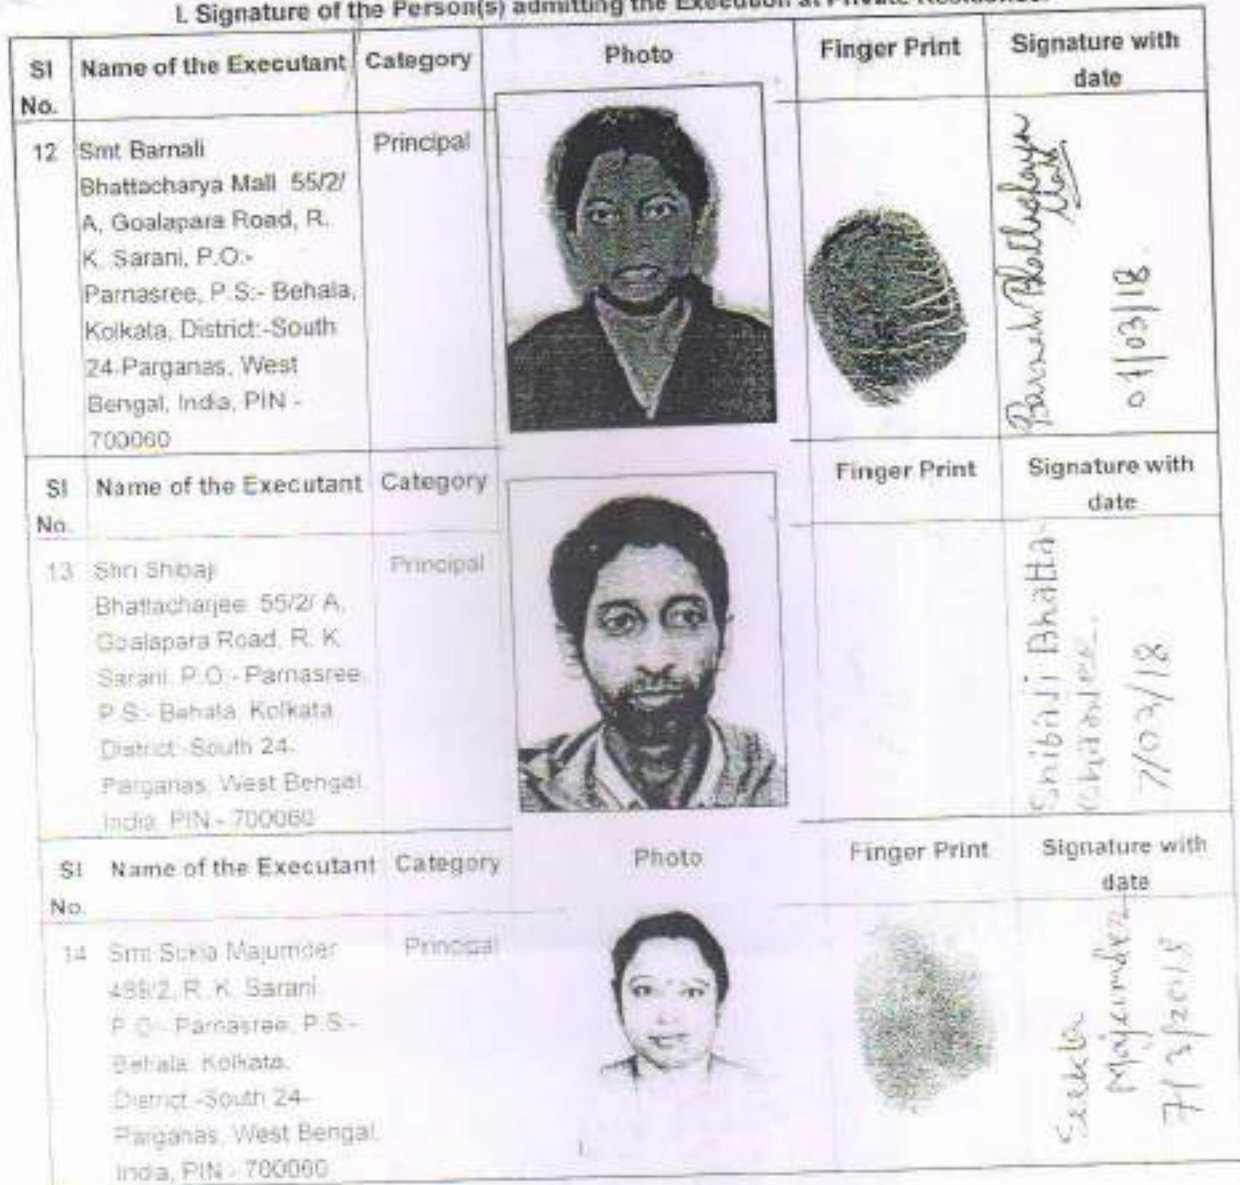 I. Signature of the Person(s) admitting the Execution at Private Residence.
Sl No. Name of the Executant Category Photo Finger Print Signature with date
12 Smt Barnali Principal
Bhattacharya Mall 55/2/
A, Goalapara Road, R.
K. Sarani, P.O:-
Parnasree, P.S:- Behala,
Kolkata, District:-South
24-Parganas, West
Bengal, India, PIN -
700060
Barnali Bhattacharya
Mall
07/03/18.
Sl No. Name of the Executant Category Finger Print Signature with date
13 Shri Shibaji Principal
Bhattacharjee 55/2/ A,
Goalapara Road, R. K.
Sarani, P.O:- Parnasree,
P.S:- Behala, Kolkata,
District:-South 24-
Parganas, West Bengal,
India, PIN - 700060
Shibaji Bhatta-
7/03/18
Sl No. Name of the Executant Category Photo Finger Print Signature with date
14 Smt Majumder Principal
489/2, R. K. Sarani,
P.O:- Parnasree, P.S:-
Behala, Kolkata,
District:-South 24-
Parganas, West Bengal,
India, PIN - 700060
Majumder
7/3/2018